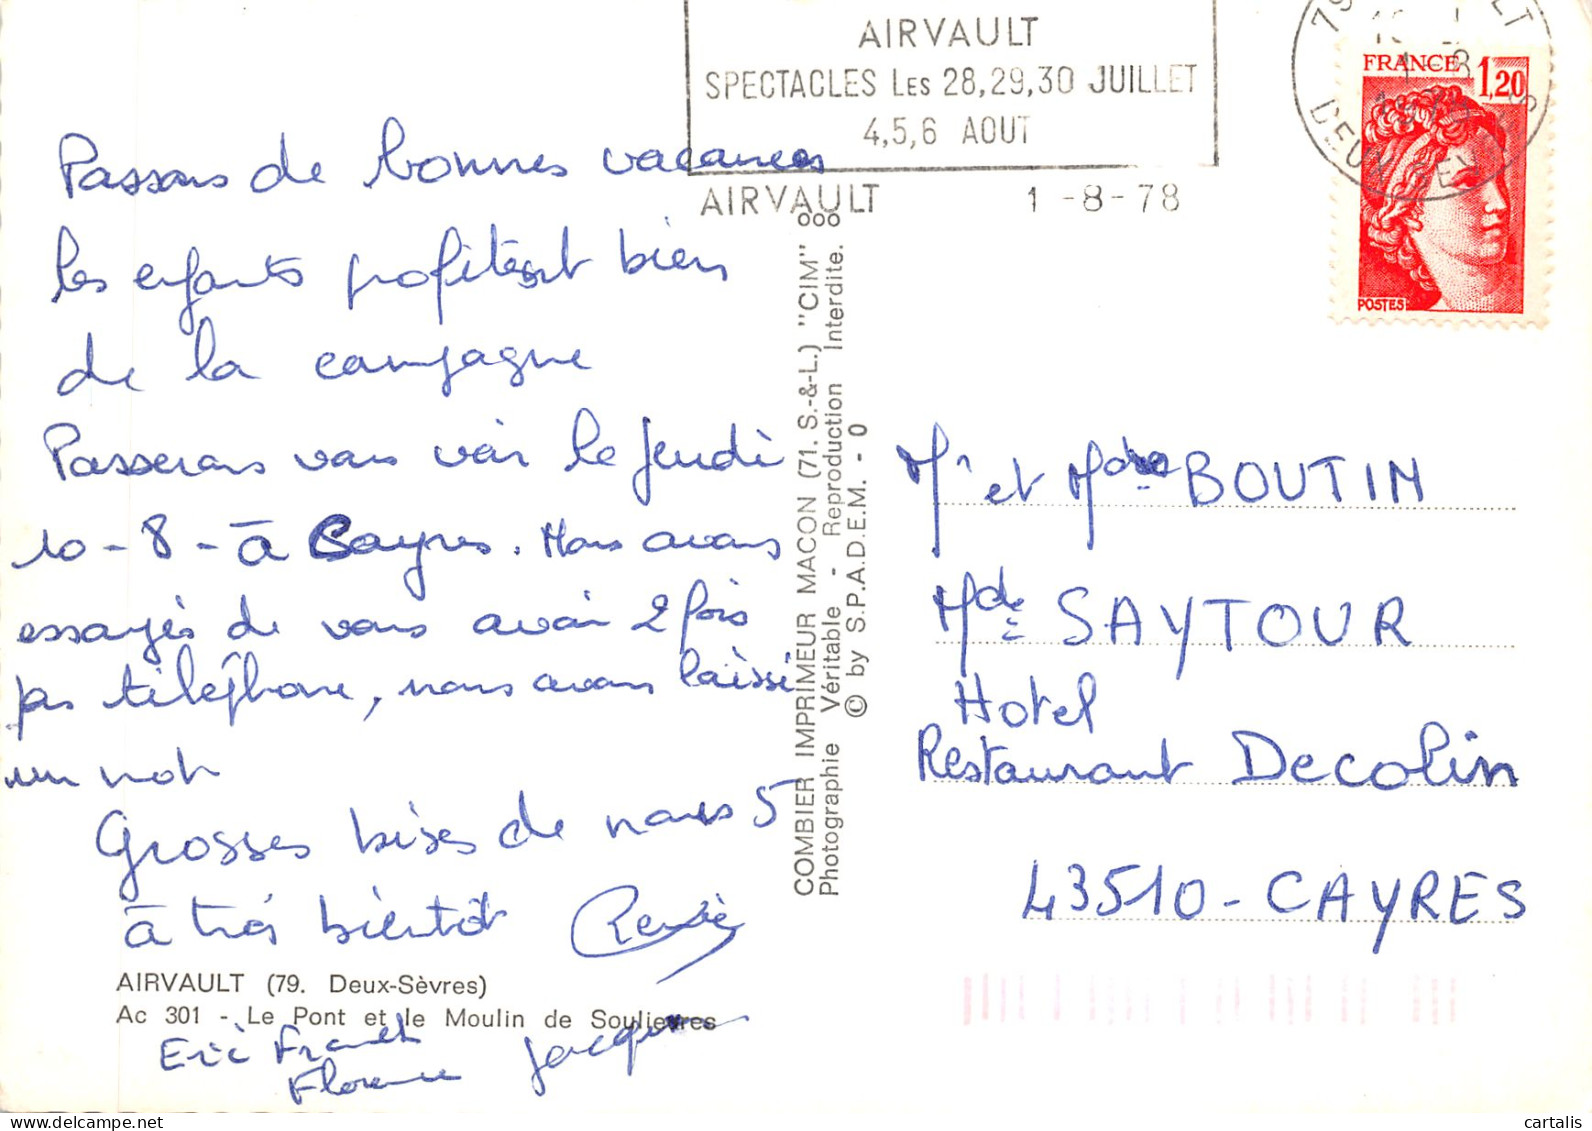 AIRVAULT
SPECTACLES Les 28,29,30 JUILLET
4,5,6 AOUT
AIRVAULT 1-8-78
DEUX SEVRES
FRANCE 1,20
POSTES
Passons de bonnes vacances
les enfants profitent bien
de la campagne
Passerons vous voir le jeudi
10-8-à Cayres. Nous avons
essayés de vous avoir 2 fois
par téléphone, nous avons laissé
un mot
Grosses bises de nous 5
à très bientôt Renée
Eric Franck Jacques
Florence
AIRVAULT (79. Deux-Sèvres)
Ac 301 - Le Pont et le Moulin de Soulievres
COMBIER IMPRIMEUR MACON (71. S.-&-L.) "CIM"
Photographie Véritable - Reproduction Interdite.
© by S.P.A.D.E.M. - 0
Mr et Mde BOUTIN
Mde SAYTOUR
Hotel
Restaurant Decolin
43510-CAYRES
cartalis